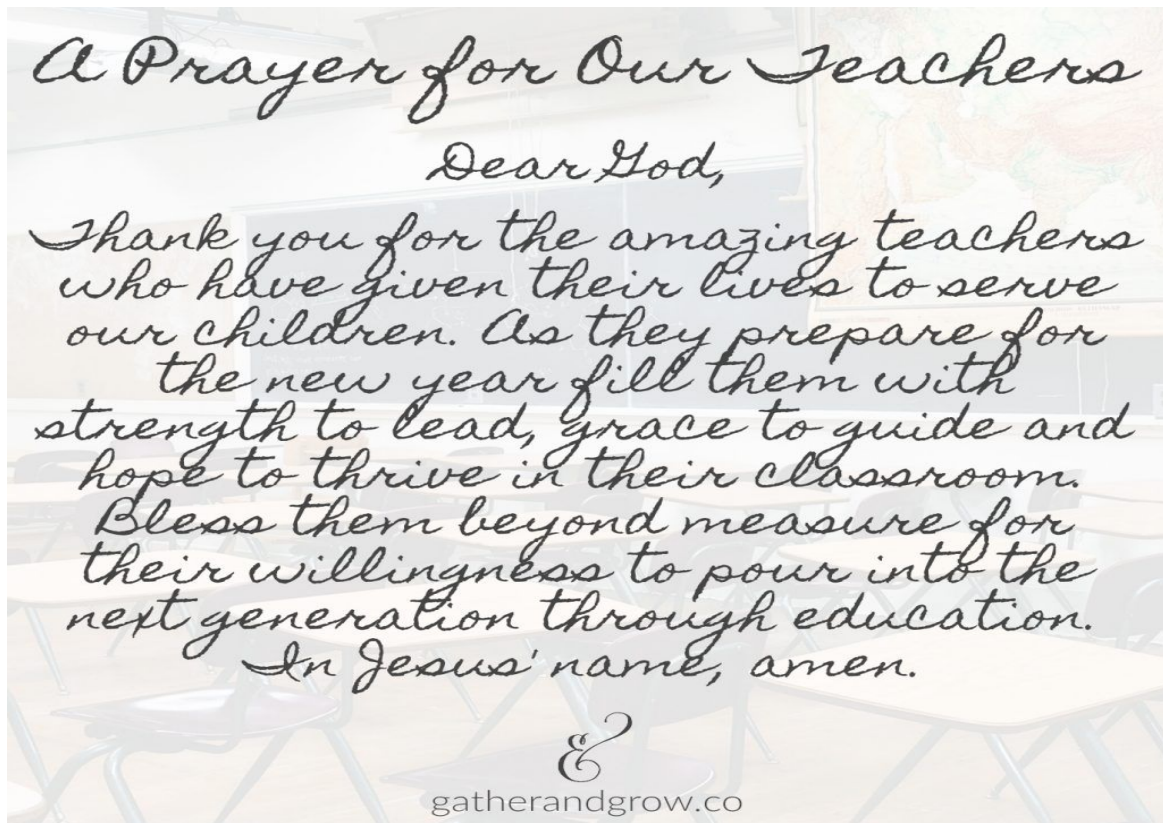 A Prayer for Our Teachers
Dear God,
Thank you for the amazing teachers
who have given their lives to serve
our children. As they prepare for
the new year fill them with
strength to lead, grace to guide and
hope to thrive in their classroom.
Bless them beyond measure for
their willingness to pour into the
next generation through education.
In Jesus' name, amen.
&
gatherandgrow.co